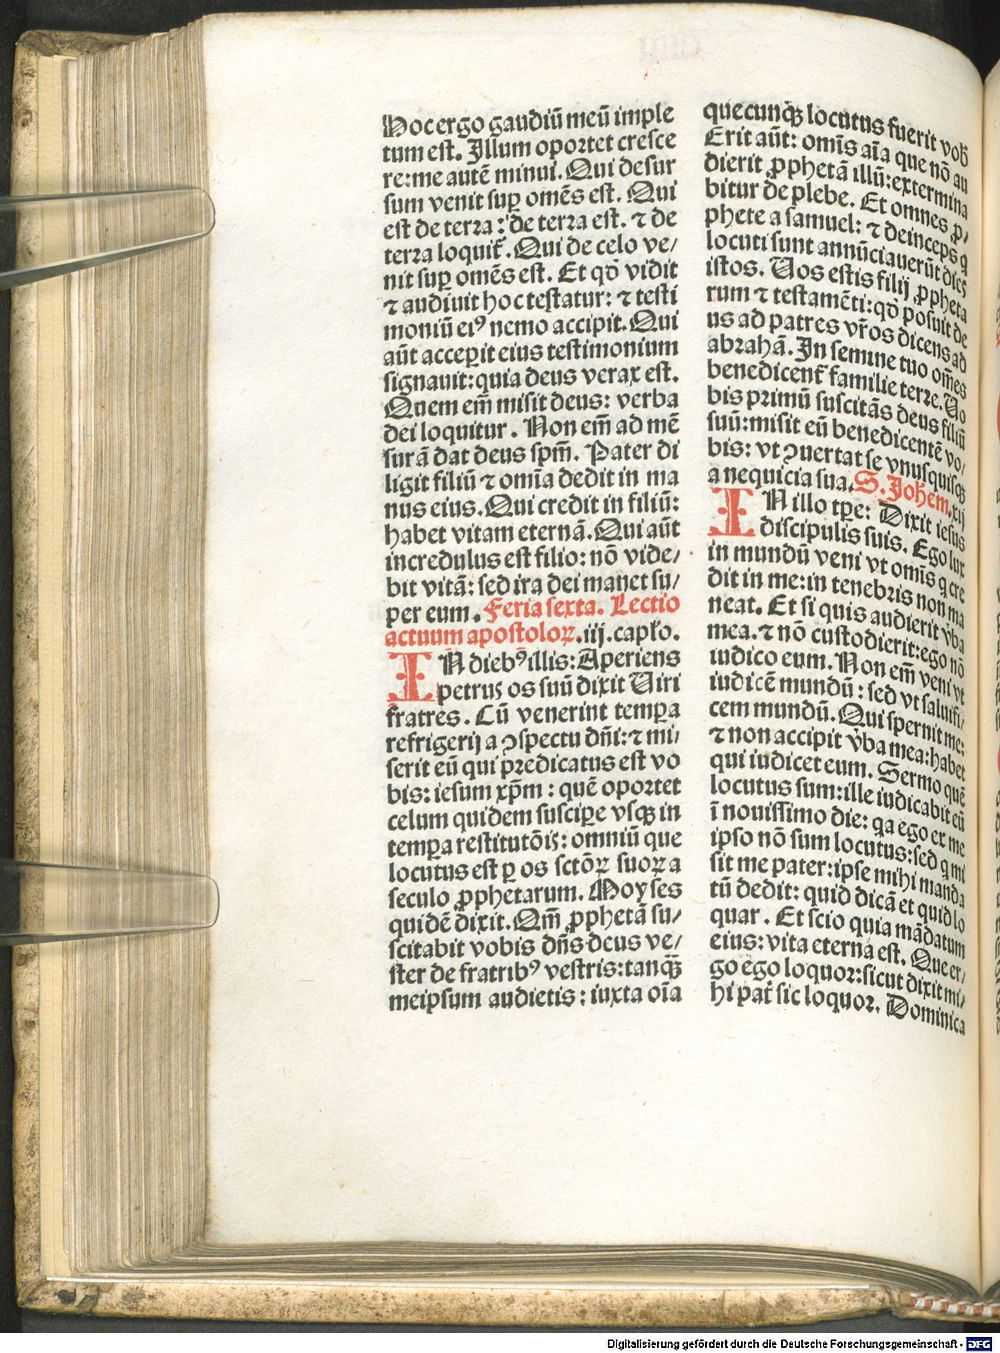 Hoc ergo gaudiū meū imple
tum est. Illum oportet cresce
re: me autē minui. Qui desur
sum venit suꝑ omēs est. Qui
est de terra: de terra est. ⁊ de
terra loquit᷑. Qui de celo ve/
nit suꝑ omēs est. Et qd̓ vidit
⁊ audiuit hoc testatur: ⁊ testi
moniū eiꝰ nemo accipit. Qui
aūt acceperit eius testimonium
signauit: quia deus verax est.
Quem em̄ misit deus: verba
dei loquitur. Non em̄ ad mē
surā dat deus spm̄. Pater di
ligit filiū ⁊ omīa dedit in ma
nus eius. Qui credit in filiū:
habet vitam eternā. Qui aūt
incredulus est filio: nō vide/
bit vitā: sed ira dei manet su/
per eum. Feria sexta. Lectio
actuum apostoloꝝ. iij. capł̓o.
IN diebꝰ illis: Aperiens
petrus os suū dixit Uiri
fratres. Cū venerint tempa
refrigerij a ꝯspectu dn̄i: ⁊ mi/
serit eū qui predicatus est vo
bis: iesum xp̄m: quē oportet
celum quidem suscipe vsqꝫ in
tempa restitutōis: omniū que
locutus est ꝑ os sctōꝝ suoꝝ a
seculo ꝓphetarum. Moyses
quidē dixit. Qm̄ ꝓphetā su/
scitabit vobis dn̄s deus ve/
ster de fratribꝰ vestris: tanqꝫ
meipsum audietis: iuxta oīa
quecunqꝫ locutus fuerit vob̄
Erit aūt: omīs aīa que nō au
dierit ꝓphetā illū: extermina
bitur de plebe. Et omnes ꝓ/
phete a samuel: ⁊ deinceps q
locuti sunt annūciauerūt dies
istos. Uos estis filij ꝓpheta
rum ⁊ testamēti: qd̓ posuit de
us ad patres vr̄os dicens ad
abrahā. In semine tuo omēs
benedicent᷑ familie terre. Uo
bis primū suscitās deus filiū
suū: misit eū benedicentē vo/
bis: vt ꝯuertat se vnusquisqꝫ
a nequicia sua. S. Johem. xij
IN illo tpe: Dixit iesus
discipulis suis. Ego lux
in mundū veni vt omīs q cre
dit in me: in tenebris non ma
neat. Et si quis audierit v̓ba
mea. ⁊ nō custodierit: ego nō
iudico eum. Non em̄ veni vt
iudicē mundū: sed vt saluifi/
cem mundū. Qui spernit me:
⁊ non accipit v̓ba mea: habet
qui iudicet eum. Sermo quē
locutus sum: ille iudicabit eū
ī nouissimo die: qa ego ex me
ipso nō sum locutus: sed q mi
sit me pater: ipse mihi manda
tū dedit: quid dicā et quid lo
quar. Et scio quia mādatum
eius: vita eterna est. Que er/
go ego loquor: sicut dixit mi/
hi pat᷑ sic loquor. Dominica
Digitalisierung gefördert durch die Deutsche Forschungsgemeinschaft - DFG